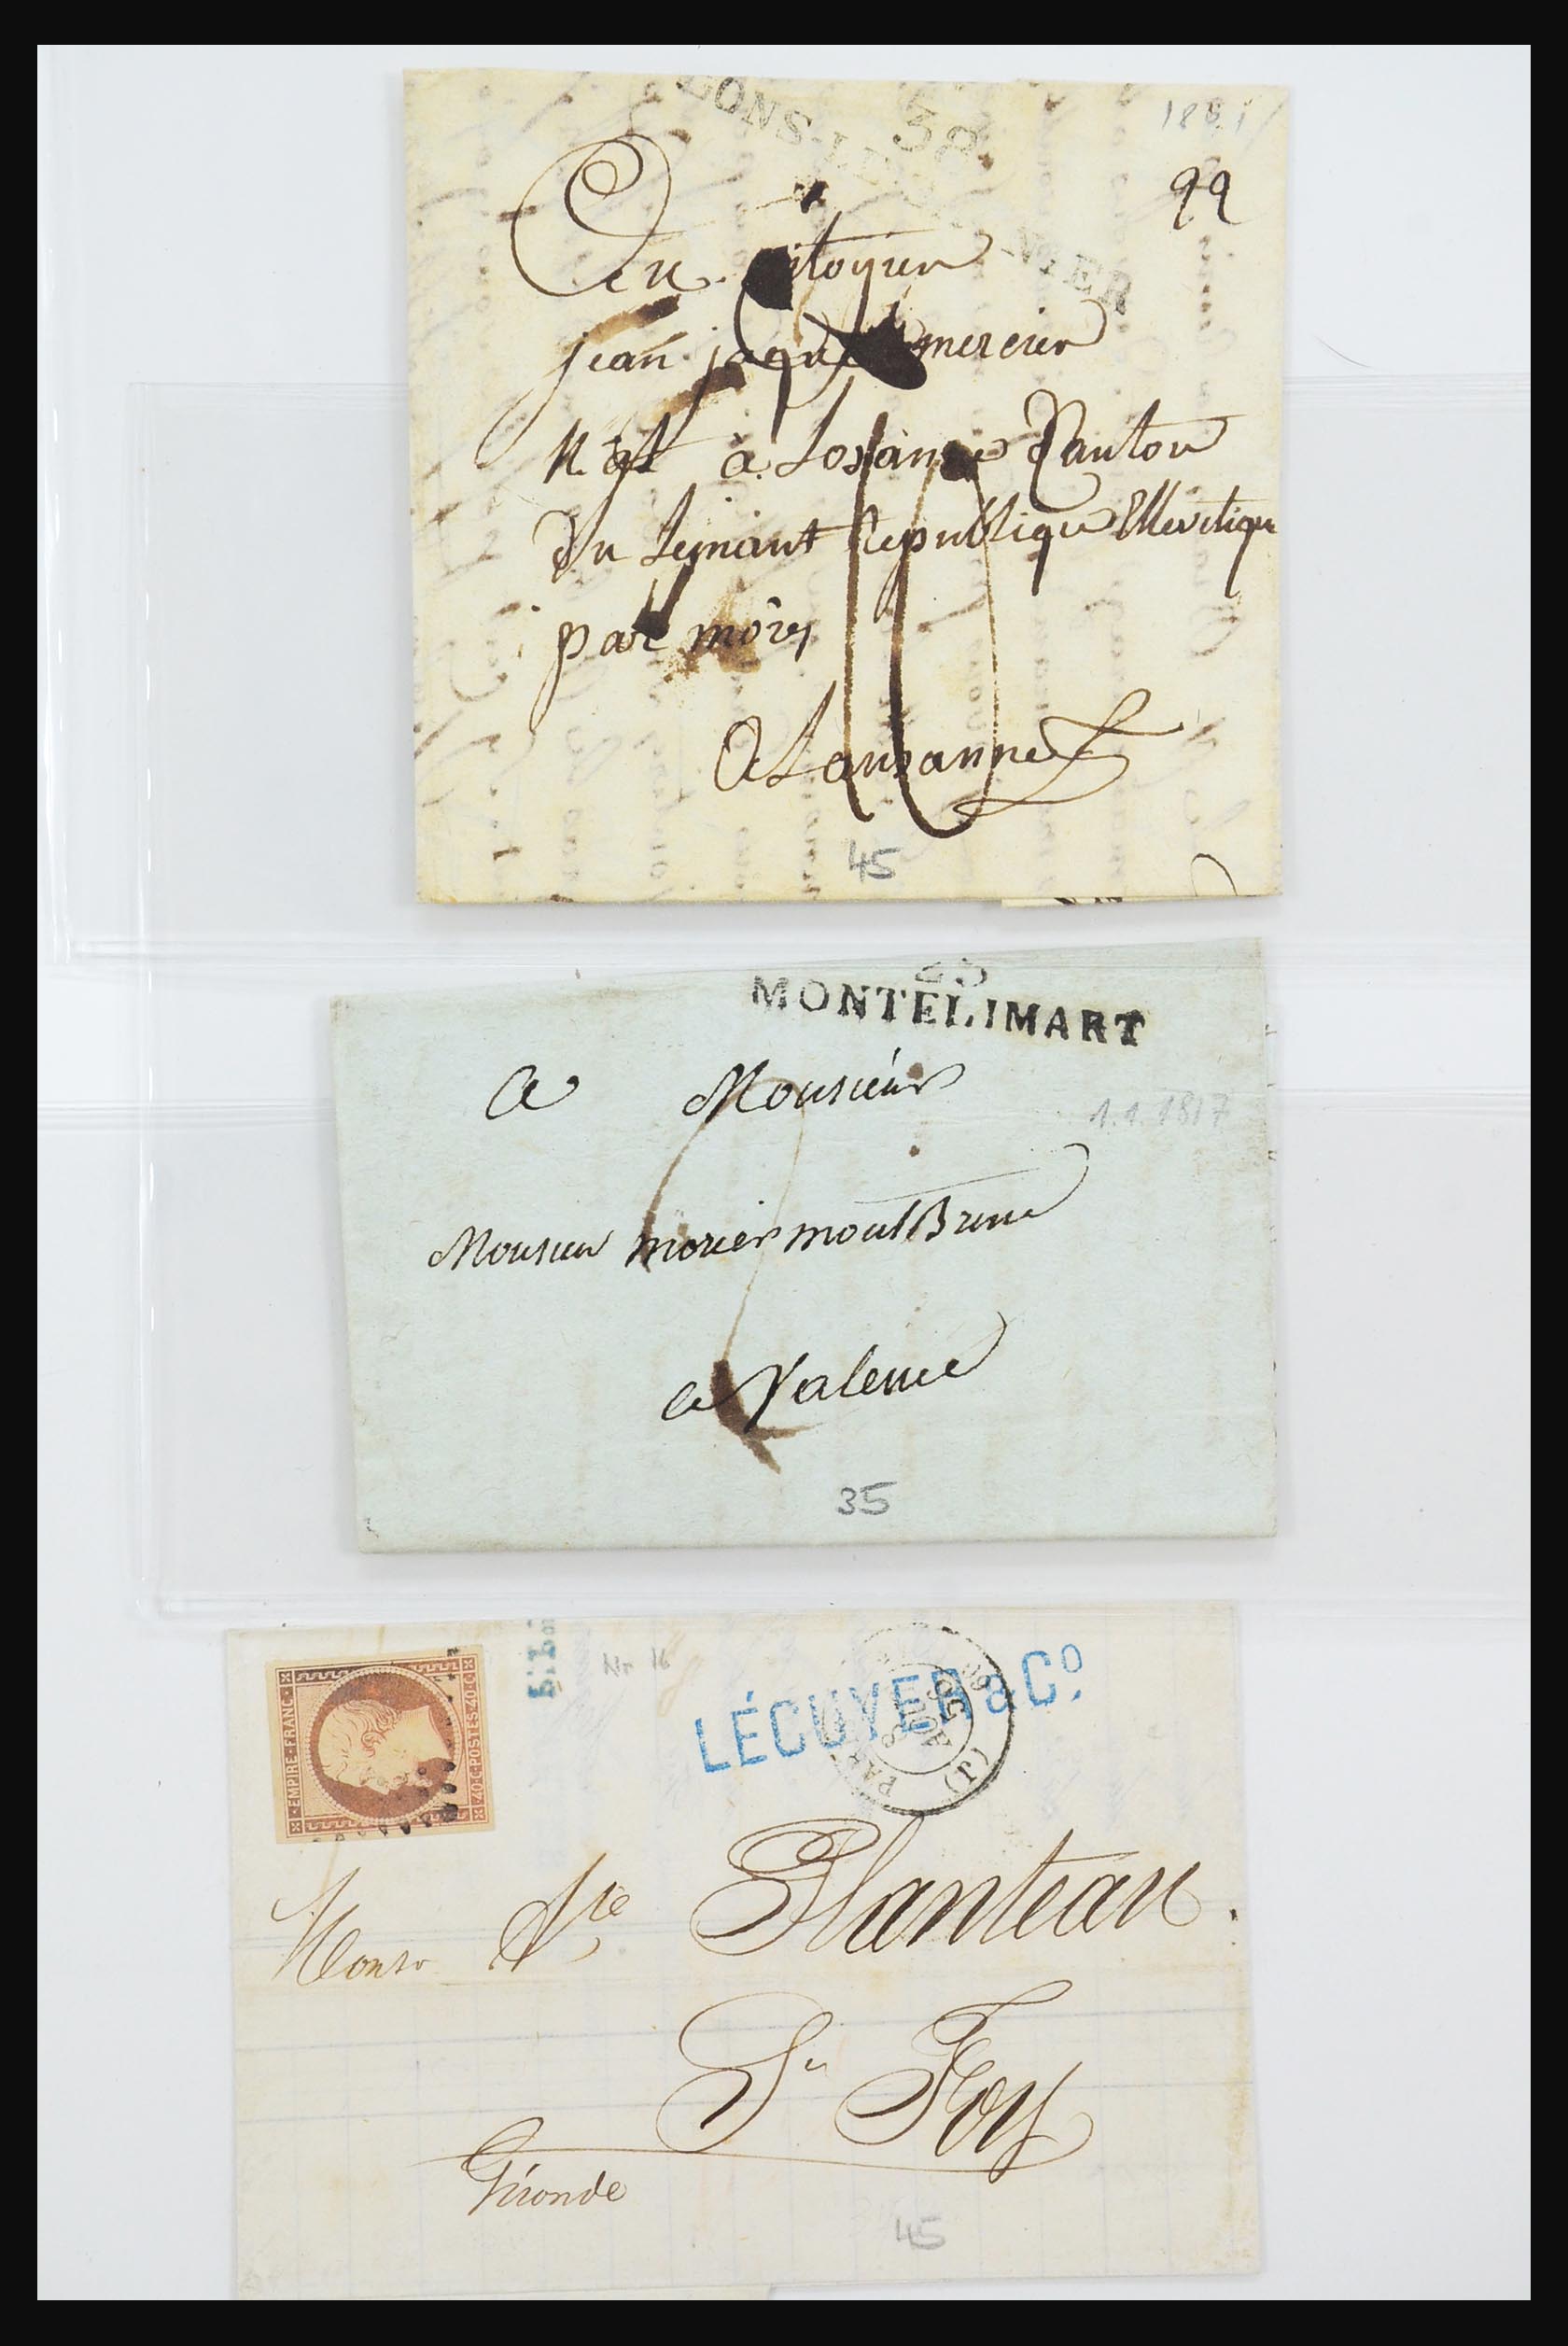 38
LONS-LE-
NIER
99
Au Citoyen
jean jaque mercier
N.at à Losanne Canton
Du Lemant Republique Ellevetique
par mores
A Lausanne
10
45
MONTELIMART
A Monsieur
1.1.1817
Monsieur morier montBrun
a Valence
35
EMPIRE·FRANC·
40·C·POSTES·40·C
Nr 16
LÉCUYER & Co.
PAR
AOUT
(J)
Monsr Planteau.
Ste Foy
Gironde
45